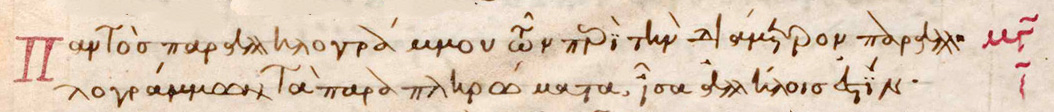 Παντὸς παραλληλογράμμου τῶν περὶ τὴν διάμετρον παραλλη
λογράμμων τὰ παραπληρώματα, ἴσα ἀλλήλοις ἐστίν.